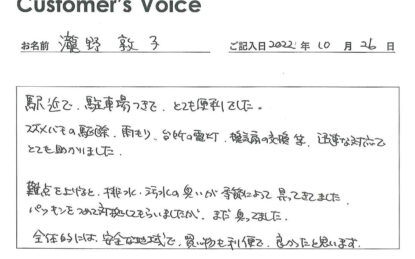 Customer's Voice
お名前 瀧野 敦子 ご記入日 2022 年 10 月 26 日
駅近で、駐車場つきで、とても便利でした。
スズメバチの駆除、雨もり、台所の電灯、換気扇の交換 等、迅速な対応で
とても助かりました。
難点を上げると、排水、汚水の臭いが季節によって昇ってきてました
パッキンをつめて対処してもらいましたが、まだ臭ってました。
全体的には、安全な地域で、買い物も利便で、良かったと思います。